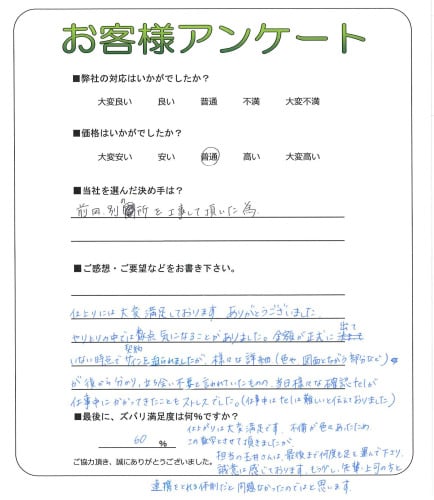 お客様アンケート
■弊社の対応はいかがでしたか?
大変良い 良い 普通 不満 大変不満
■価格はいかがでしたか?
大変安い 安い 普通 高い 大変高い
■当社を選んだ決め手は?
前回、別の 所を工事して頂いた為
■ご感想・ご要望などをお書き下さい。
仕上りには大変満足しております ありがとうございました
やりとりの中では数点気になることがありました。金額が正式に出て
いない時点で契約サインを迫られましたが、様々な詳細(色や、図面とちがう部分など)
が後から分かり、立ち会い不要と言われていたものの、当日様々な確認telが
仕事中にかかってきたこともストレスでした。(仕事中はtelは難しいと伝えておりました)
■最後に、ズバリ満足度は何%ですか?
60 %
仕上りは大変満足です、不備が色々あったため、
この数字とさせて頂きましたが
ご協力頂き、誠にありがとうございました。
担当の玉井さんは、最後まで何度も足を運んで下さり、
誠意は感じております。もう少し、先輩・上司の方と
連携をとれる体制だと問題なかったのではと思います